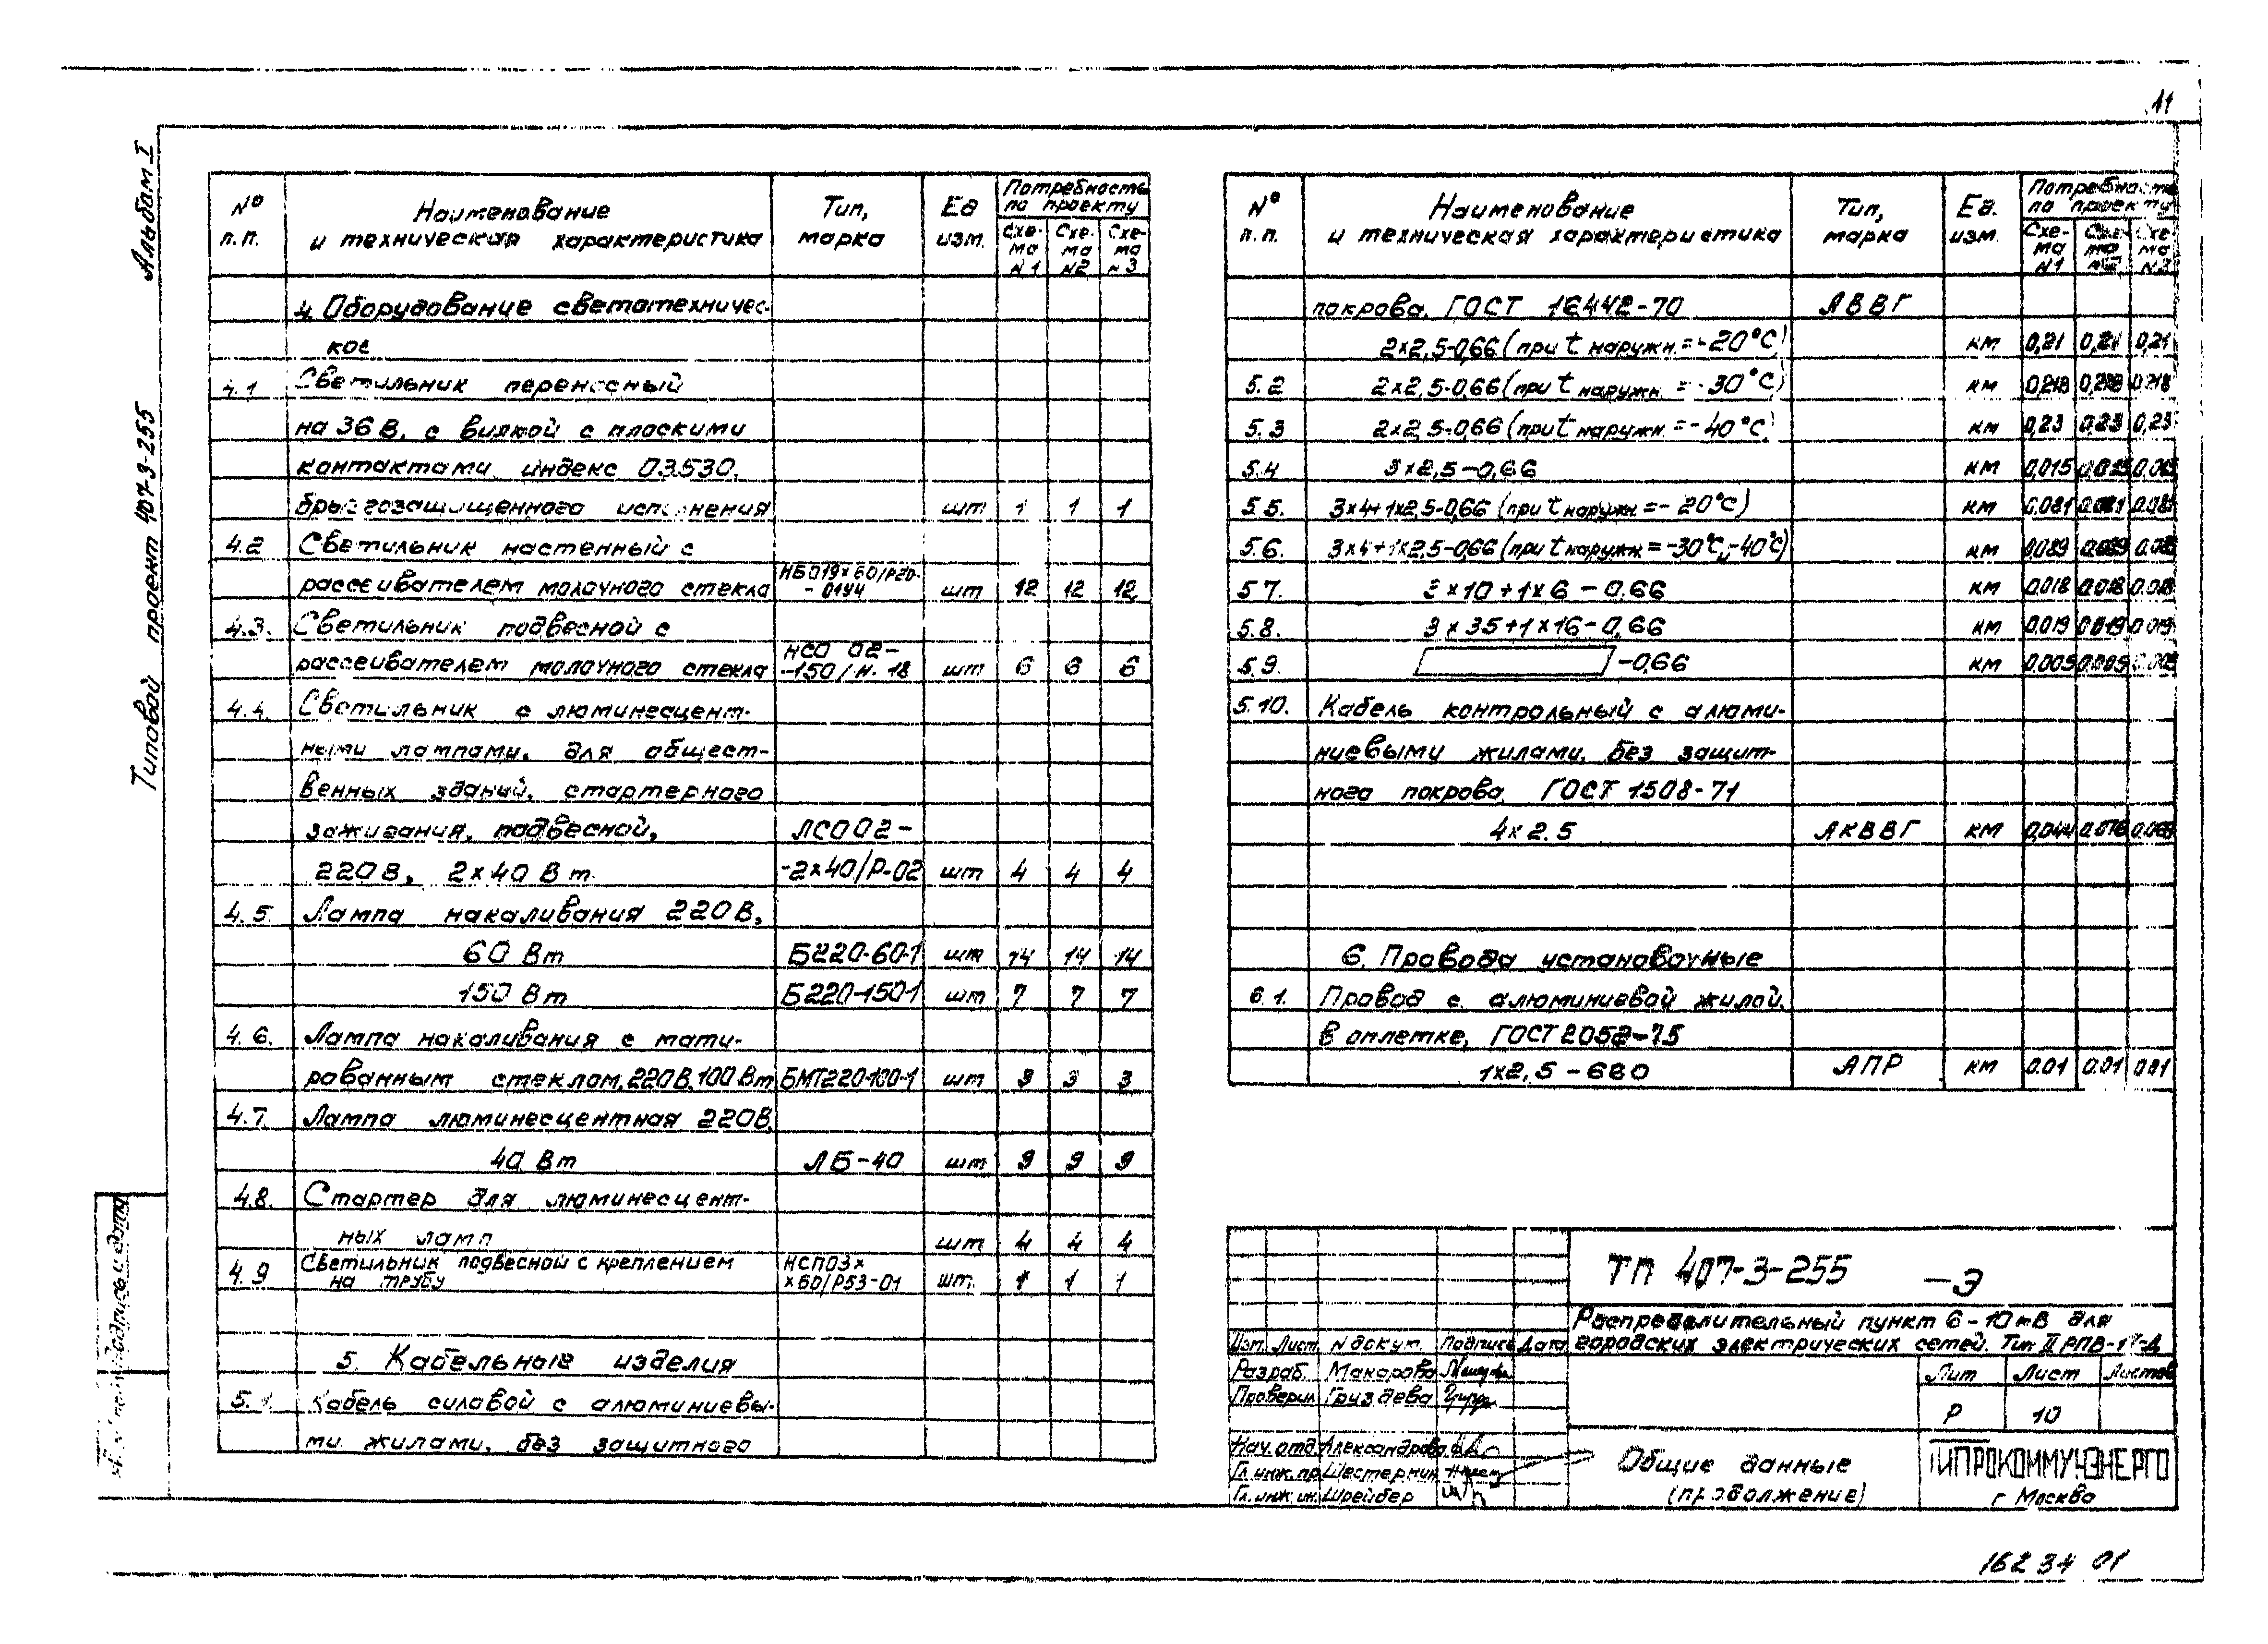 11
Альбом I
Типовой проект 407-3-255
№ п.п. Наименование и техническая характеристика Тип, марка Ед изм. Потребность по проекту Схема N1 Схема N2 Схема N3
4. Оборудование светотехничес-
кое
4.1 Светильник переносный
на 36 В, с вилкой с плоскими
контактами, индекс 03530,
брызгозащищенного исполнения шт 1 1 1
4.2 Светильник настенный с
рассеивателем молочного стекла НБ019х60/Р20--01У4 шт 12 12 12
4.3. Светильник подвесной с
рассеивателем молочного стекла НСО 02--150/Н-18 шт 6 6 6
4.4. Светильник с люминесцент-
ными лампами, для общест-
венных зданий, стартерного
зажигания, подвесной, ЛСО02-
220В, 2х40 Вт. -2х40/Р-02 шт 4 4 4
4.5. Лампа накаливания 220В,
60 Вт Б220-60-1 шт 14 14 14
150 Вт Б220-150-1 шт 7 7 7
4.6. Лампа накаливания с мати-
рованным стеклом, 220В, 100 Вт БМТ220-100-1 шт 3 3 3
4.7. Лампа люминесцентная 220В,
40 Вт ЛБ-40 шт 9 9 9
4.8. Стартер для люминесцент-
ных ламп шт 4 4 4
4.9 Светильник подвесной с креплением НСП03х
на трубу х60/Р53-01 шт. 1 1 1
5. Кабельные изделия
5.1. Кабель силовой с алюминиевы-
ми жилами, без защитного
№ п.п. Наименование и техническая характеристика Тип, марка Ед. изм. Потребность по проекту Схема N1 Схема N2 Схема N3
покрова. ГОСТ 16442-70 АВВГ
2х2,5-0,66 (при t наружн. = -20°С) км 0,21 0,21 0,21
5.2 2х2,5-0,66 (при t наружн. = -30°С) км 0,218 0,218 0,218
5.3 2х2,5-0,66 (при t наружн. = -40°С) км 0,23 0,23 0,23
5.4 3х2,5-0,66 км 0,015 0,015 0,015
5.5. 3х4+1х2,5-0,66 (при t наружн = -20°С) км 0.081 0.081 0.081
5.6. 3х4+1х2,5-0,66 (при t наружн = -30°С, -40°С) км 0,089 0,089
5.7. 3х10+1х6-0.66 км 0.018 0.018 0.018
5.8. 3х35+1х16-0,66 км 0.019 0.019 0.019
5.9. -0,66 км 0,005 0,005 0.005
5.10. Кабель контрольный с алюми-
ниевыми жилами, без защит-
ного покрова, ГОСТ 1508-71
4х2.5 АКВВГ км 0,044
6. Провода установочные
6.1. Провод с алюминиевой жилой,
в оплетке, ГОСТ 2052-75
1х2,5-660 АПР км 0.01 0.01 0.01
ТП 407-3-255 -Э
Распределительный пункт 6-10 кВ для
городских электрических сетей. Тип II РПВ-
Изм. Лист N докум. Подпись Дата
Разраб. Макарова
Проверил Груздева
Нач. отд. Александрова
Гл. инж. пр. Шестернин
Гл. инж. ин. Шрейбер
Лит Лист Листов
Р 10
Общие данные
(продолжение)
ГИПРОКОММУНЭНЕРГО
г. Москва
Подпись и дата
16234 01